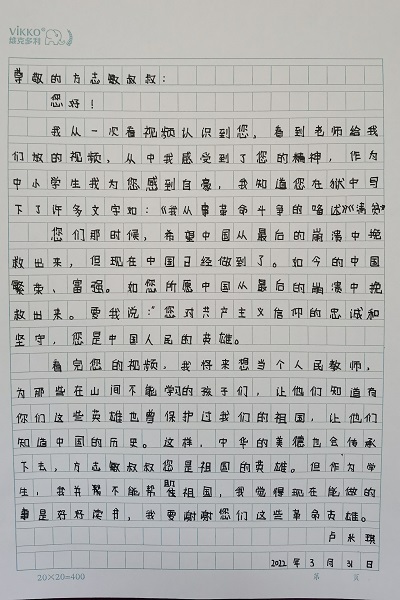 ViKKO®
维克多利
尊敬的方志敏叔叔：
您好！
我从一次看视频认识到您，看到老师给我
们放的视频，从中我感受到了您的精神，作为
中小学生我为您感到自豪，我知道您在狱中写
下了许多文字如：《我从事革命斗争的略述》《清贫》
您们那时候，希望中国从最后的崩溃中挽
救出来，但现在中国已经做到了。如今的中国
繁荣、富强。如您所愿中国从最后的崩溃中挽
救出来。要我说：“您对共产主义信仰的忠诚和
坚守，您是中国人民的英雄。
看完您的视频，我将来想当个人民教师，
为那些在山间不能学习的孩子们，让他们知道有
你们这些英雄也曾保护过我们的祖国，让他们
知道中国的历史。这样，中华的美德也会传承
下去，方志敏叔叔您是祖国的英雄。但作为学
生，我并不能帮助祖国，我觉得现在能做的
事是好好读书，我要谢谢您们这些革命英雄。
卢米琪
2022年3月31日
20×20=400 第 页